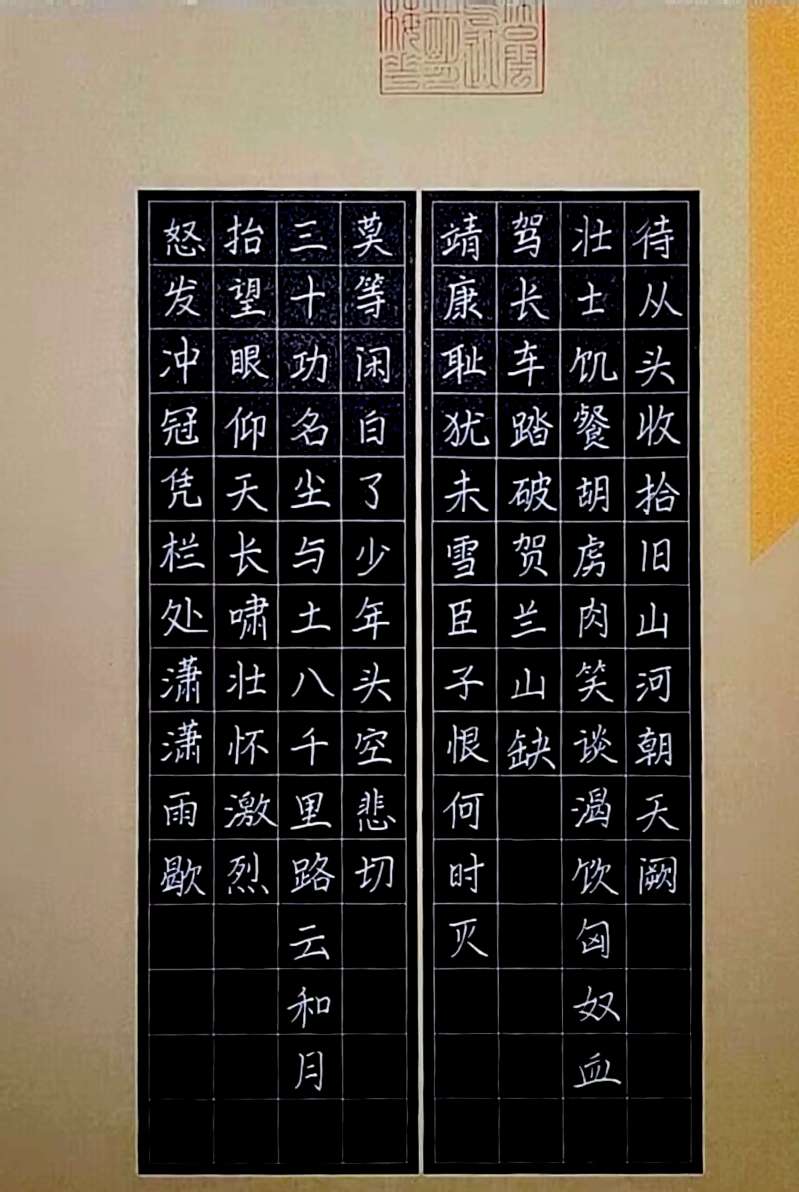 怒发冲冠凭栏处潇潇雨歇
抬望眼仰天长啸壮怀激烈
三十功名尘与土八千里路云和月
莫等闲白了少年头空悲切
靖康耻犹未雪臣子恨何时灭
驾长车踏破贺兰山缺
壮士饥餐胡虏肉笑谈渴饮匈奴血
待从头收拾旧山河朝天阙